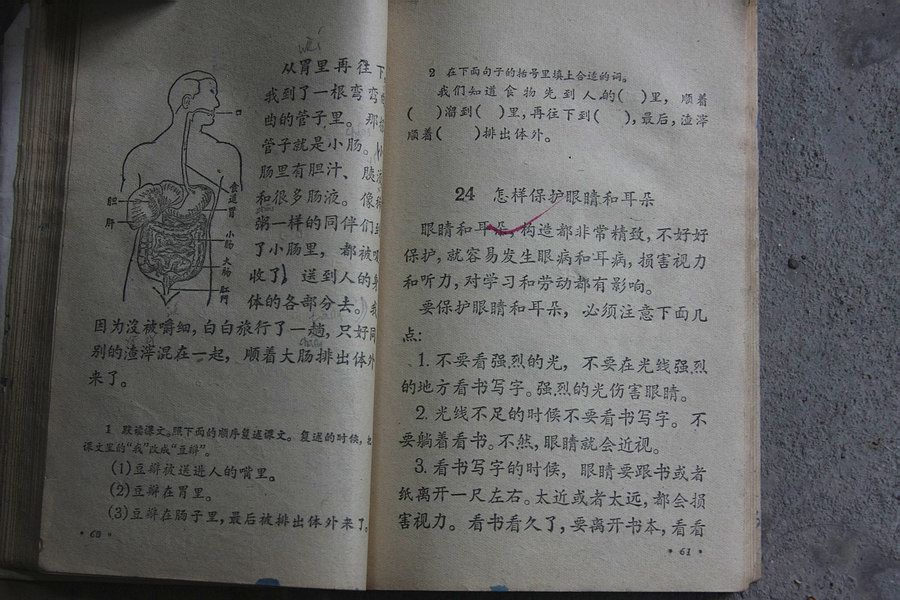 wèi
从胃里再往下
我到了一根弯弯
曲的管子里。那
管子就是小肠。
肠里有胆汁、胰
和很多肠液。像
粥一样的同伴们
了小肠里，都被
收了，送到人的
体的各部分去。
因为没被嚼细，白白旅行了一趟，只好
别的渣滓混在一起，顺着大肠排出体外
来了。
口
食道
胃
胆
肝
小肠
大肠
肛门
1 默读课文。照下面的顺序复述课文。复述的时候，
课文里的“我”改成“豆瓣”。
(1)豆瓣被送进人的嘴里。
(2)豆瓣在胃里。
(3)豆瓣在肠子里，最后被排出体外来了。
·60·
2 在下面句子的括号里填上合适的词。
我们知道食物先到人的( )里，顺着
( )溜到( )里，再往下到( )，最后，渣滓
顺着( )排出体外。
24 怎样保护眼睛和耳朵
眼睛和耳朵，构造都非常精致，不好好
保护，就容易发生眼病和耳病，损害视力
和听力，对学习和劳动都有影响。
要保护眼睛和耳朵，必须注意下面几
点：
1. 不要看强烈的光，不要在光线强烈
的地方看书写字。强烈的光伤害眼睛。
2. 光线不足的时候不要看书写字。不
要躺着看书。不然，眼睛就会近视。
3. 看书写字的时候，眼睛要跟书或者
纸离开一尺左右。太近或者太远，都会损
害视力。看书看久了，要离开书本，看看
·61·